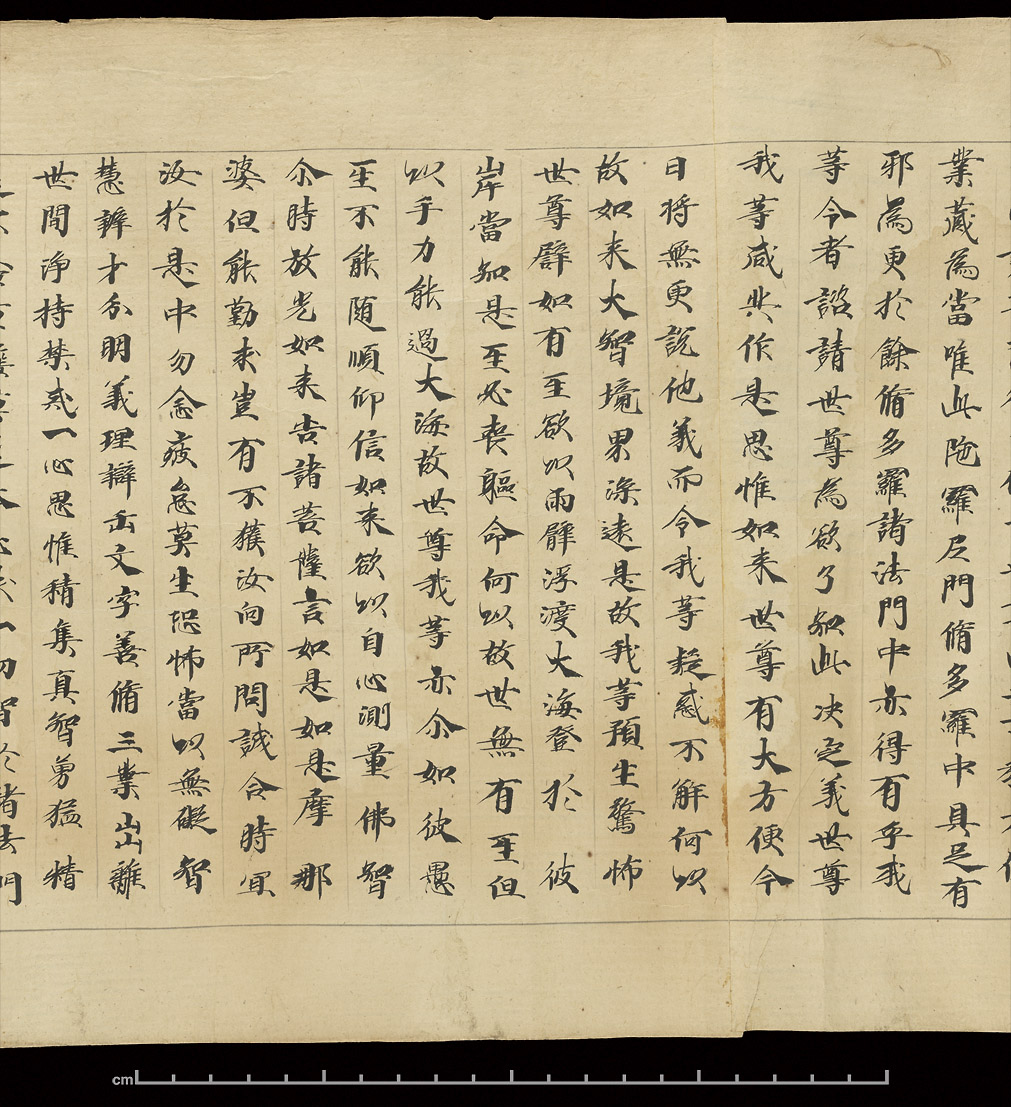 業藏為當唯此陁羅尼門脩多羅中具足有
邪為更於餘脩多羅諸法門中亦得有乎我
等今者諮請世尊為欲了知此决定義世尊
我等咸共作是思惟如来世尊有大方便今
日将無更說他義而令我等疑惑不解何以
故如来大智境界深遠是故我等預生驚怖
世尊辟如有𤯔欲以兩臂浮渡大海登於彼
岸當知是𤯔必喪軀命何以故世無有𤯔但
以手力能過大海故世尊我等亦尒如彼愚
𤯔不能随順仰信如来欲以自心測量佛智
尒時放光如来告諸菩薩言如是如是摩那
婆但能勤求豈有不獲汝向所問誠合時冝
汝於是中勿念疲怠莫生恐怖當以無礙智
慧辯才分明義理辯正文字善脩三業出離
世間淨持禁戒一心思惟積集真智勇猛精